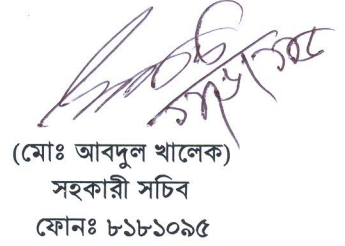 (মোঃ আবদুল খালেক)
সহকারী সচিব
ফোনঃ ৮১৮১০৯৫